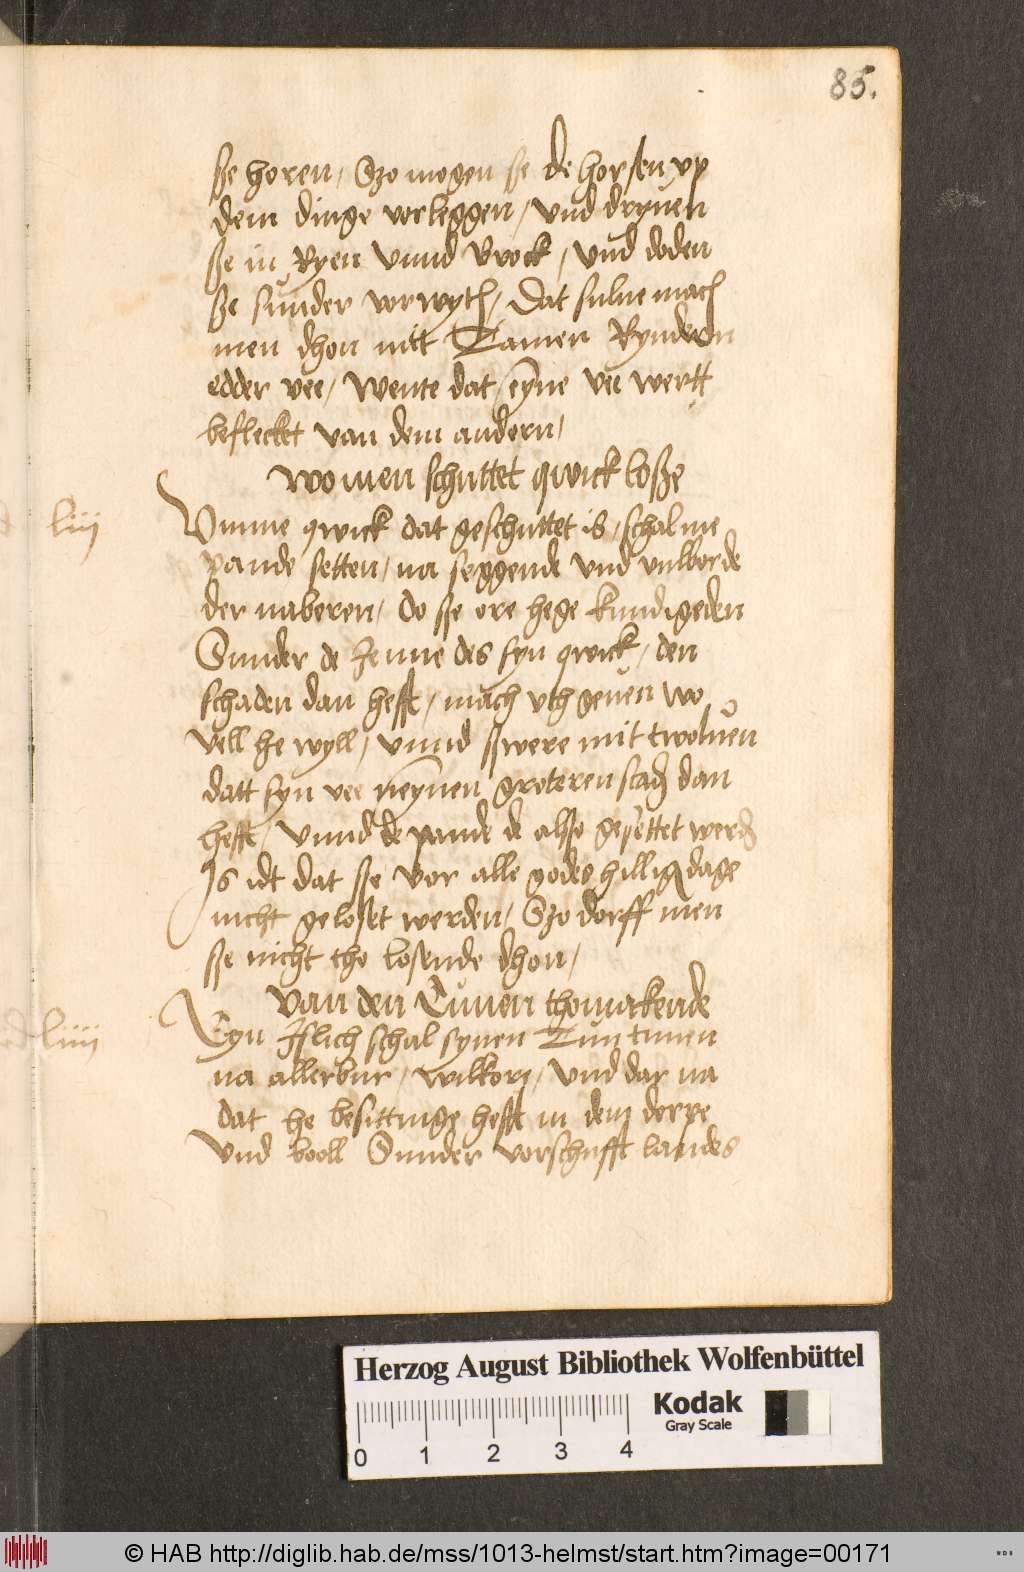 85.
sse horen, Szo mogen se de horsen vp
dem dinge vorleggen, vnd dryuen
sse in Ryen vnnd Brock, vnd doden
sze sunder vorwyth, Dat sulue mach
men dhon mit Tamen Ryndern
edder vee, Wente dat eyne vee wertt
beflecket van dem andern,
Wo men schuttet qwick losze
liij
Vmme qwick dat geschuttet is, schal me
pande setten, na seggende vnd vulborde
der naberen, do sse ore hege kundigeden
Sunder de Jenne des syn qwick, den
schaden dan hefft, mach vth geuen wo
vell he wyll, vnnd swere mit twoluen
datt syn vee neynen groteren scaden dan
hefft, Vnnd de pande de alsso gesettet werden
Is idt dat sse vor alle godes hilligen dage
nicht geloset werden, Szo dorff men
sse nicht tho losende dhon,
Van den Tunen thomakende
liiij
Eyn Jslich schal synen Tun tunen
na allerbur, wilkorn, vnd dar na
dat he besittinge hefft in dem dorpe
vnd booll Sunder vorschufft landes
Herzog August Bibliothek Wolfenbüttel
Kodak
Gray Scale
0 1 2 3 4
© HAB http://diglib.hab.de/mss/1013-helmst/start.htm?image=00171